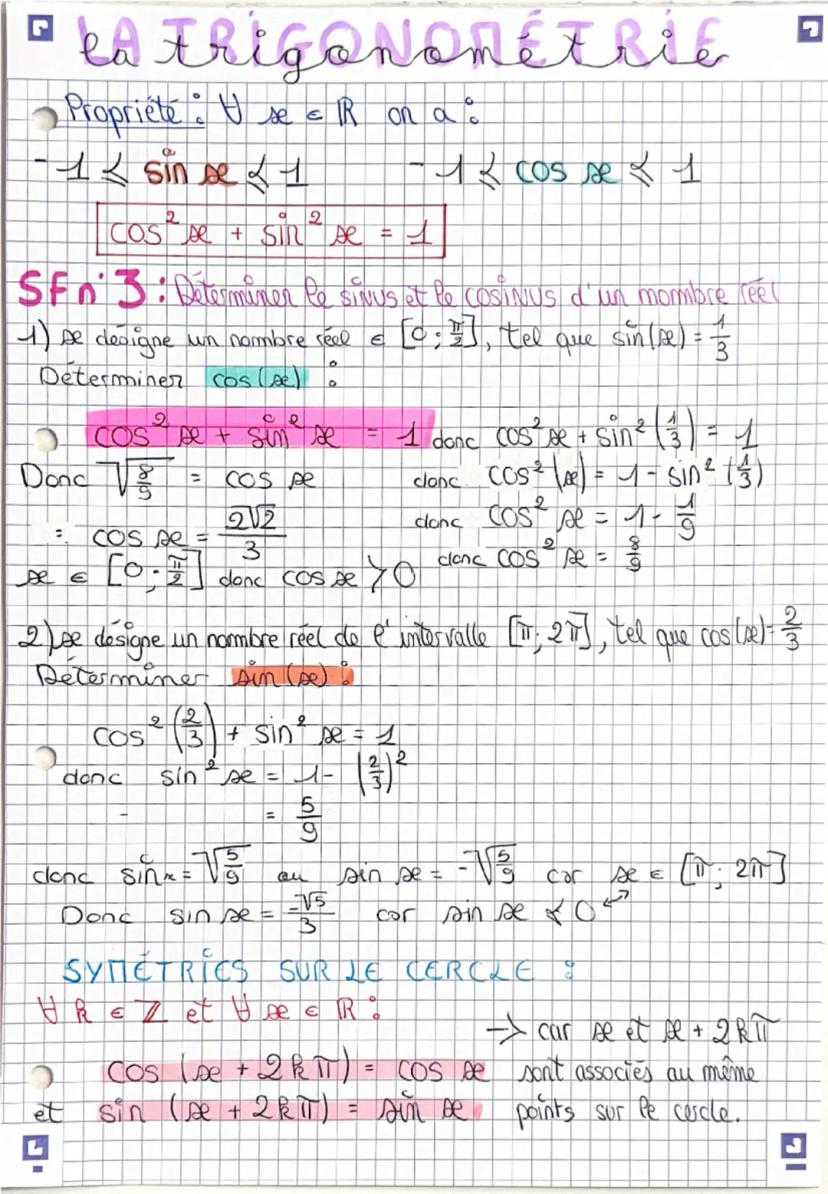 LA TRIGONOMÉTRIE
la trigonométrie
Propriété : ∀ x ∈ ℝ on a :
-1 ⩽ sin x ⩽ 1   -1 ⩽ cos x ⩽ 1
cos² x + sin² x = 1
SF n°3 : Déterminer le sinus et le cosinus d'un nombre réel
1) x désigne un nombre réel ∈ [0 ; π/2], tel que sin(x) = 1/3
Déterminer cos(x) :
cos² x + sin² x = 1 donc cos² x + sin² (1/3) = 1
Donc √(8/9) = cos x   donc cos² (x) = 1 - sin² (1/3)
: cos x = 2√2/3   donc cos² x = 1 - 1/9
x ∈ [0 ; π/2] donc cos x > 0   donc cos² x = 8/9
2) x désigne un nombre réel de l'intervalle [π ; 2π], tel que cos(x) = 2/3
Déterminer sin(x) :
cos² (2/3) + sin² x = 1
donc sin² x = 1 - (2/3)²
- = 5/9
donc sin x = √(5/9) ou sin x = -√(5/9) car x ∈ [π ; 2π]
Donc sin x = -√5/3 car sin x ⩽ 0 ↔
SYMÉTRIES SUR LE CERCLE :
∀ k ∈ ℤ et ∀ x ∈ ℝ :
→ car x et x + 2kπ
cos (x + 2kπ) = cos x   sont associés au même
et sin (x + 2kπ) = sin x   points sur le cercle.